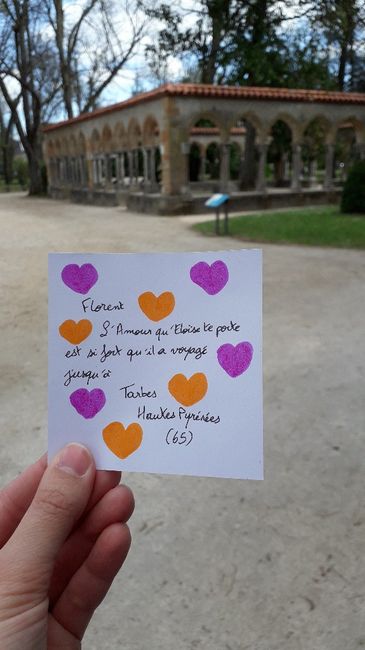 Florent
L'Amour qu'Eloïse te porte
est si fort qu'il a voyagé
jusqu'à
Tarbes
Hautes Pyrénées
(65)